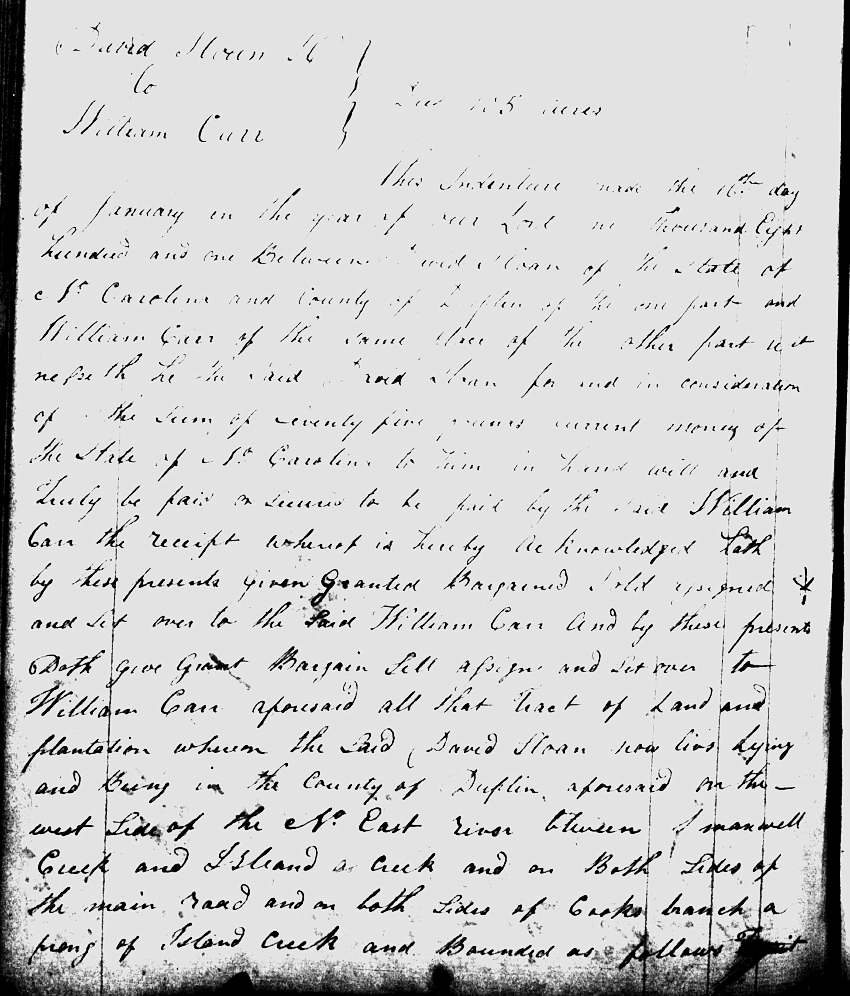 David Sloan
to
William Carr
Deed 105 acres
This Indenture made the 16th day
of January in the year of our Lord one Thousand Eight
hundred and one Between David Sloan of the State of
No Carolina and County of Duplin of the one part and
William Carr of the same place of the other part wit
nesseth the Said David Sloan for and in consideration
of the Sum of Seventy five pounds current money of
the State of No Carolina to him in hand will and
Truly be paid or Secured to be paid by the Said William
Carr the receipt whereof is hereby Acknowledged hath
by these presents given Granted Bargained Sold assigned
and Set over to the Said William Carr And by these presents
Doth give Grant Bargain Sell assign and Set over to
William Carr aforesaid all that tract of Land and
plantation whereon the Said David Sloan now livs Lying
and Being in the County of Duplin aforesaid on the
west Side of the No East river btween maxwell
Creek and Island creek and on Both Sides of
the main road and on both Sides of Cooks branch a
prong of Island Creek and Bounded as follows